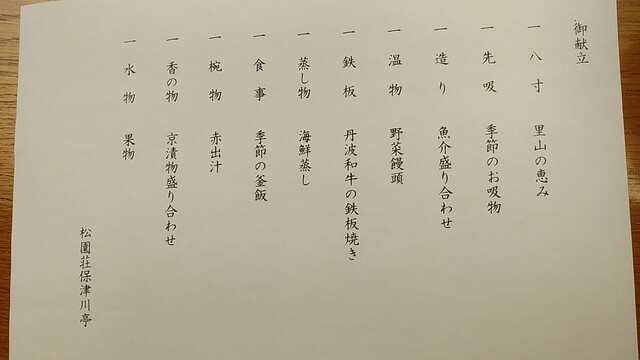 御献立
一 八寸 里山の恵み
一 先吸 季節のお吸物
一 造り 魚介盛り合わせ
一 温物 野菜饅頭
一 鉄板 丹波和牛の鉄板焼き
一 蒸し物 海鮮蒸し
一 食事 季節の釜飯
一 椀物 赤出汁
一 香の物 京漬物盛り合わせ
一 水物 果物
松園荘保津川亭